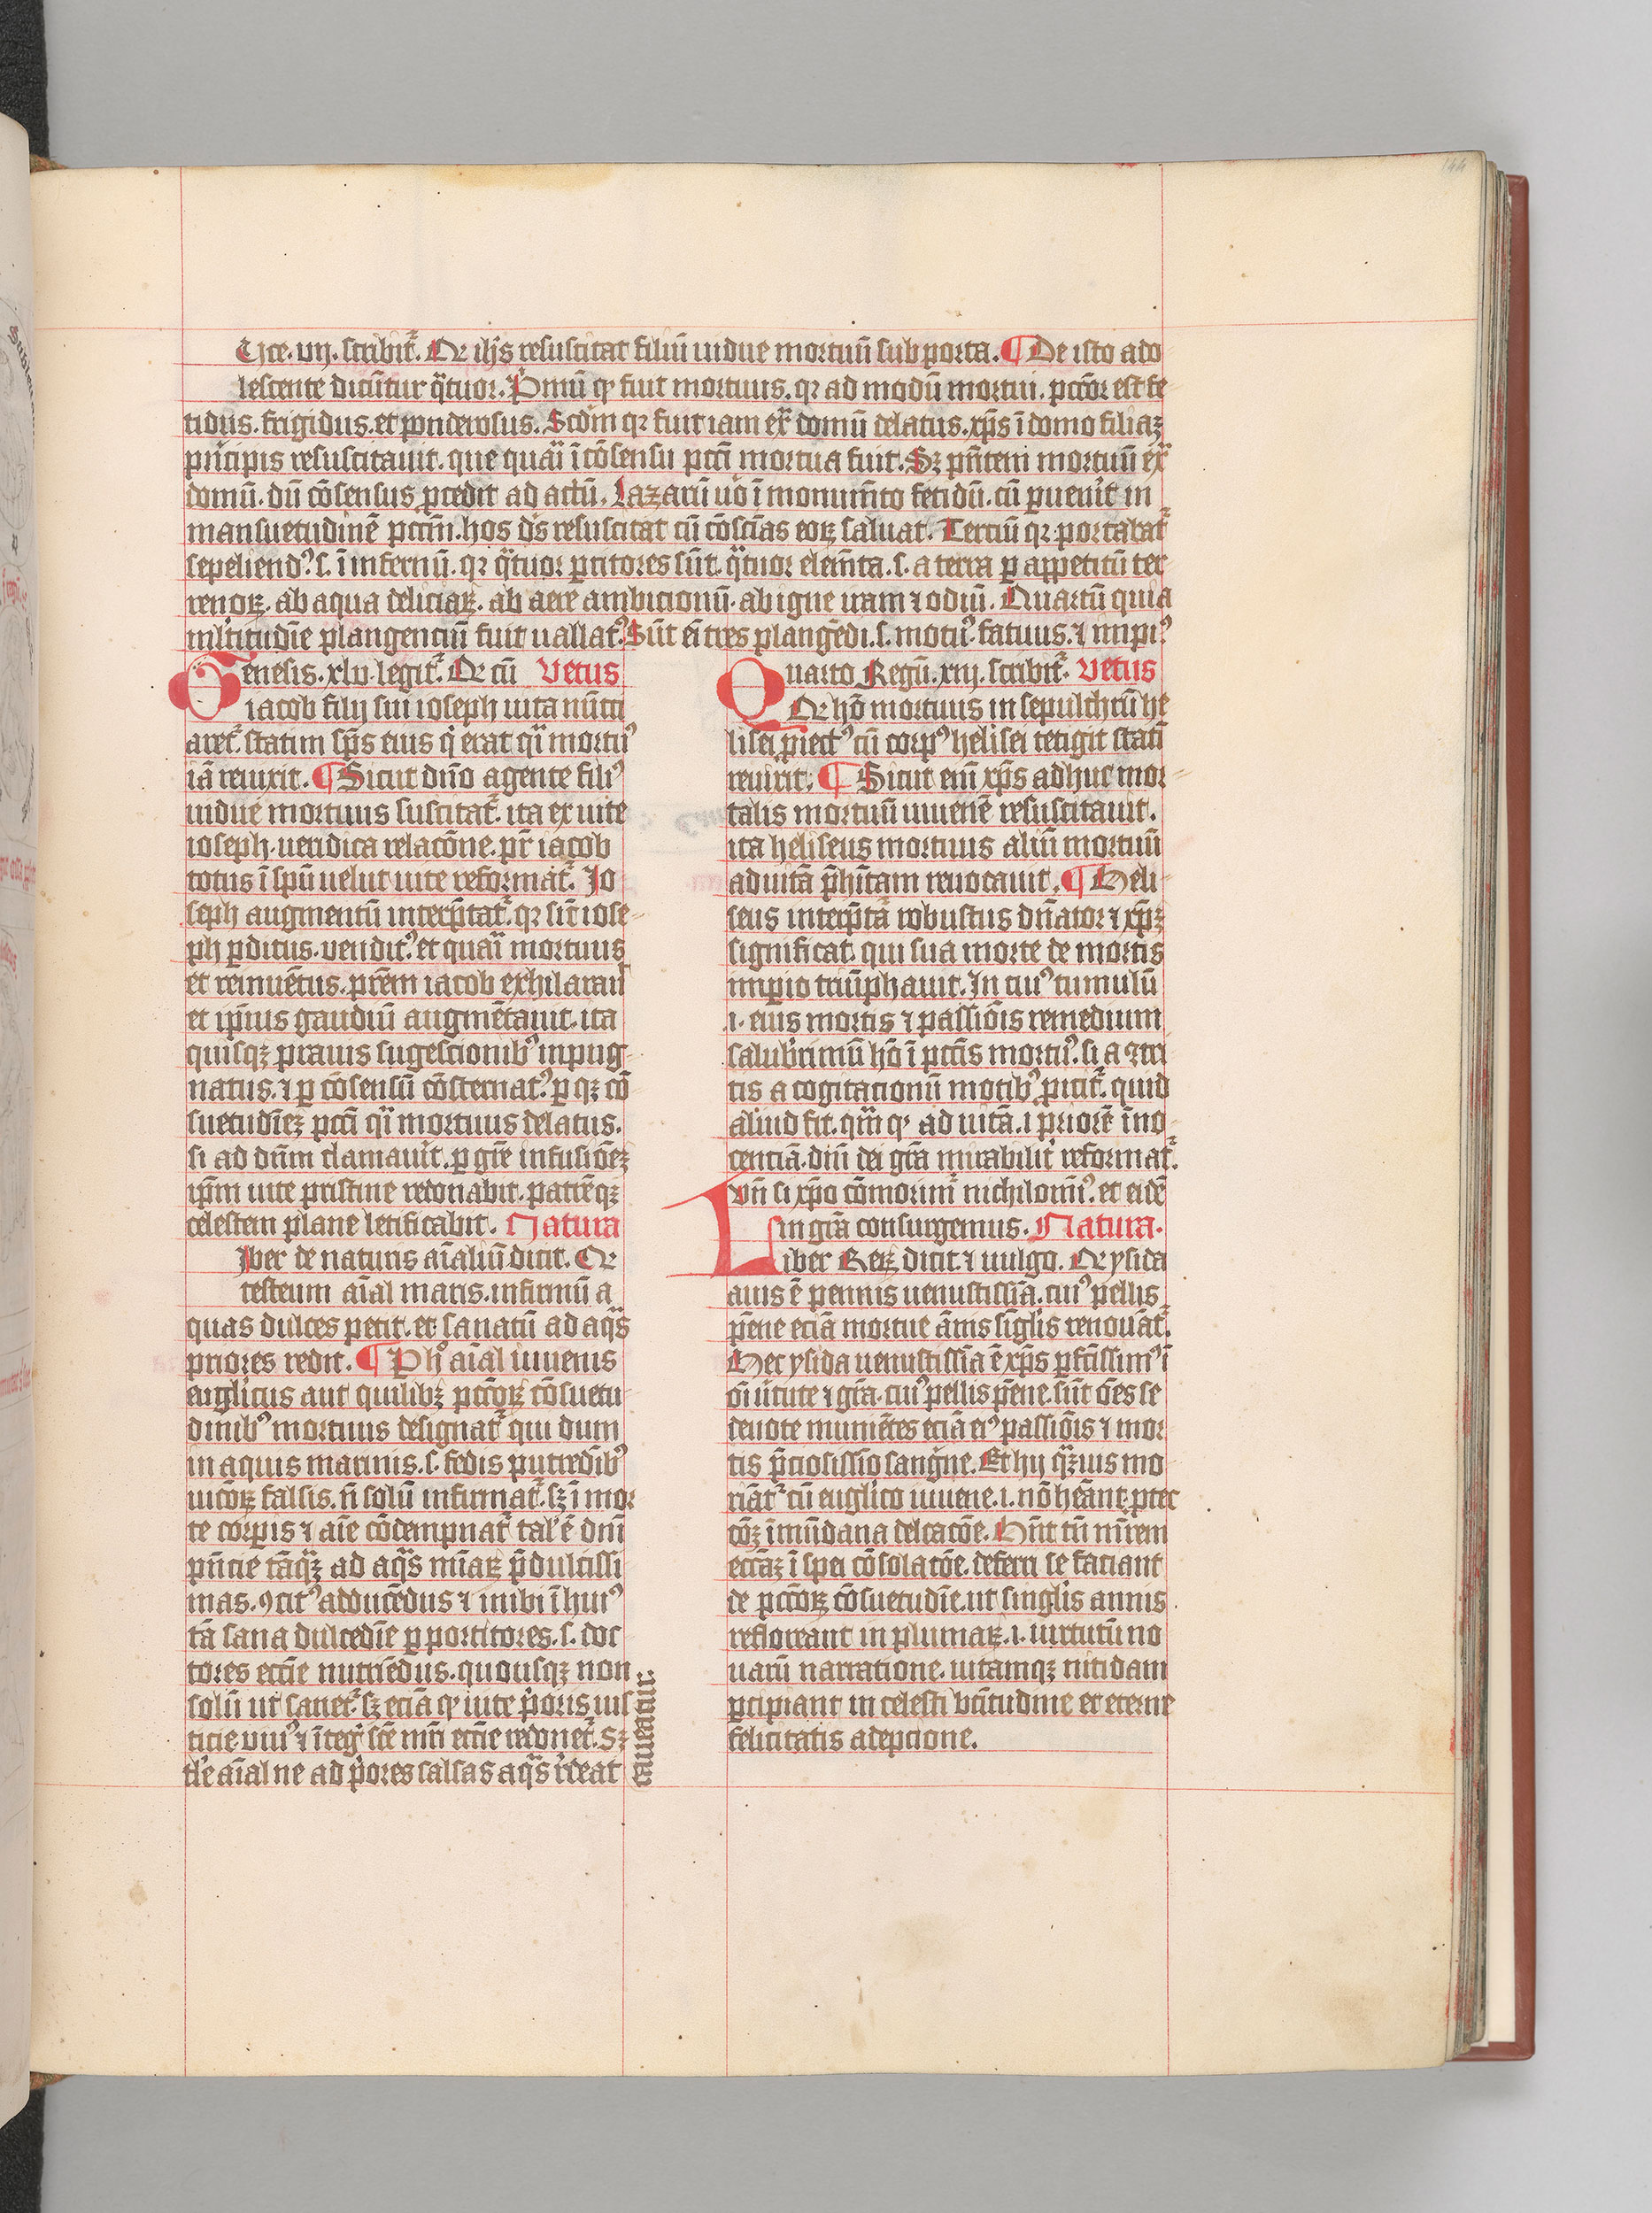 144
Uce. vij. scribit᷑. Qr ihs resuscitat filiū uidue mortuū sub porta. ¶ De isto ado
lescente dicūtur qͣtuor. Pͥmū qꝫ fuit mortuus. qr ad modū mortui. pctōr est fe
tidus. frigidus. et ponderosus. Scdm qr fuit iam exͣ domū delatus. xp̄s ī domo filiaꝫ
pͥncipis resuscitauit. que quaͣi ī cōsensu pctī mortua fuit. Sꝫ pn̄tem mortuū exͣ
domū. dū cōsensus ꝓcedit ad actū. Lazarū uo ī monumēto fetidū. cū ꝑuenit in
mansuetudinē pctīm. hos dn̄s resuscitat cū cōscīas eoꝝ saluat. Terciū qr portabat᷑
sepeliendꝰ. s. ī infernū. qr qͣtuor portitores sūt. qͣtuor elemēta. s. a terra ꝑ appetitū ter
renoꝝ. ab aqua deliciaꝝ. ab aere ambicionū. ab igne iram ⁊ odiū. Quartū quia
mltitudīe plangenciū fuit uallatꝰ. Sūt ei tres plangēdi. s. motuꝰ. fatuus. ⁊ impiꝰ
Genesis. xlv. legit᷑. Qr cū Vetus
iacob filij sui ioseph uita nūcci
aret᷑. statim sp̄s eius qͥ erat qͣi mortuꝰ
iā reuixit. ¶ Sicut dn̄o agente filiꝰ
uidue mortuus suscitat᷑. ita ex uite
ioseph. ueridica relacōne. pr̄ iacob
totus ī spū uelut uite reformat᷑. Jo
seph augmentū interp̄tat᷑. qr sic iose
ph ꝑditus. venditꝰ. et quaͣi mortuus
et reinuētus. prēm iacob exhilarauͥ
et ip̄ius gaudiū augmētauit. ita
quisqꝫ prauis sugestionibꝰ inpug
natus. ⁊ ꝑ cōsensū cōsternatꝰ. ꝑ qꝫ cō
suetudīeꝫ pctī qͣi mortuus delatus.
si ad dn̄m clamauit. ꝑ grē infusiōeꝫ
ip̄m uite pristine redonabit. patrēqꝫ
celestem plane letificabit. Natura
Iber de naturis aīaliū dicit. Qr
testeum aīal maris. infirmū a
quas dulces petit. et sanatū ad aqͣs
priores redit. ¶ Ph̊ aīal iuuenis
euglicus aut quilibꝫ pctōꝝ cōsuetu
dinibꝰ mortuus designat᷑ qui dum
in aquis marinis. s. fedis putredībꝰ
uicōꝝ falsis. n̄ solū infirmat᷑. sꝫ ī mor
te corpis ⁊ aīe cōdempnat᷑ tal' ē dn̄i
pn̄cie tāqͣꝫ ad aqͣs mīaꝝ p̄dulcissi
mas. ꝯcitꝰ adducēdus ⁊ inibi ī huiꝰ
tā sana dulcedīe ꝑ portitores. s. doc
tores eccīe nutriēdus. quousqꝫ non
solū ut sanet᷑. sꝫ eciā qꝫ iute pͥoris iuſ
ticie uniꝰ ⁊ īteg' scē mri eccīe redonet᷑. Sꝫ
tl'e aīal ne ad pͥores salsas aqͣs r̄deat
caueatur.
Quarto Regū. xiij. scribit᷑. Vetus
Qr hō mortuus in sepulchrū he
lisei ꝓiectꝰ cū corpꝰ helisei tetigit statī
reuixit. ¶ Sicut eni xp̄s adhuc mor
talis mortuū iuuenē resuscitauit.
ita heliseus mortuus aliū mortuū
ad uitā p̄hītam reuocauit. ¶ Heli
seus interp̄ta᷑ robustus dn̄ator ⁊ xp̄ꝫ
significat. qui sua morte de mortis
imperio triūphauit. In cuiꝰ tumulū
.i. eius mortis ⁊ passiōis remedium
salub'rimū hō ī pctīs mortuꝰ. si a ꝯtri
tis a cogitacionū motibꝰ ꝓicit᷑. quid
aliud fit. qͣm qꝫ ad uitā. i. priorē īno
cenciā. diu dei grā mirabilit' reformat᷑.
Vn̄ si xp̄o cōmorim᷑ nichilomīꝰ. et eidē
in grā consurgemus. Natura.
Liber Reꝝ dicit. ⁊ uulgo. Qr ysida
auis ē pennis uenustissīa. cuiꝰ pellis
pēne eciā mortue ānis sīglis renouāt᷑.
Hec ysida uenustissīa ē xp̄s ꝑfcīssimꝰ ī
oī uͥtute ⁊ grā. cuiꝰ pellis pēne. sūt ōes se
deuote muniētes eciā eiꝰ passiōis ⁊ mor
tis p̄ciosissīo sangͥne. Et hij qͣꝫuis mo
riāt᷑ cū euglīco iuuene. i. nō hēant ꝓpter
cōꝫ īmūdana delcacōe. Hn̄t tn̄ mr̄em
eccāꝫ ī spei cōsolacōe. deferri se faciant
de pctōꝝ cōsuetudīe. ut singlis annis
refloreant in plumaꝝ. i. uirtutū no
uarū narratione. uitamqꝫ nitidam
ꝑcipiant in celesti btītudine et eterne
felicitatis adepcione.